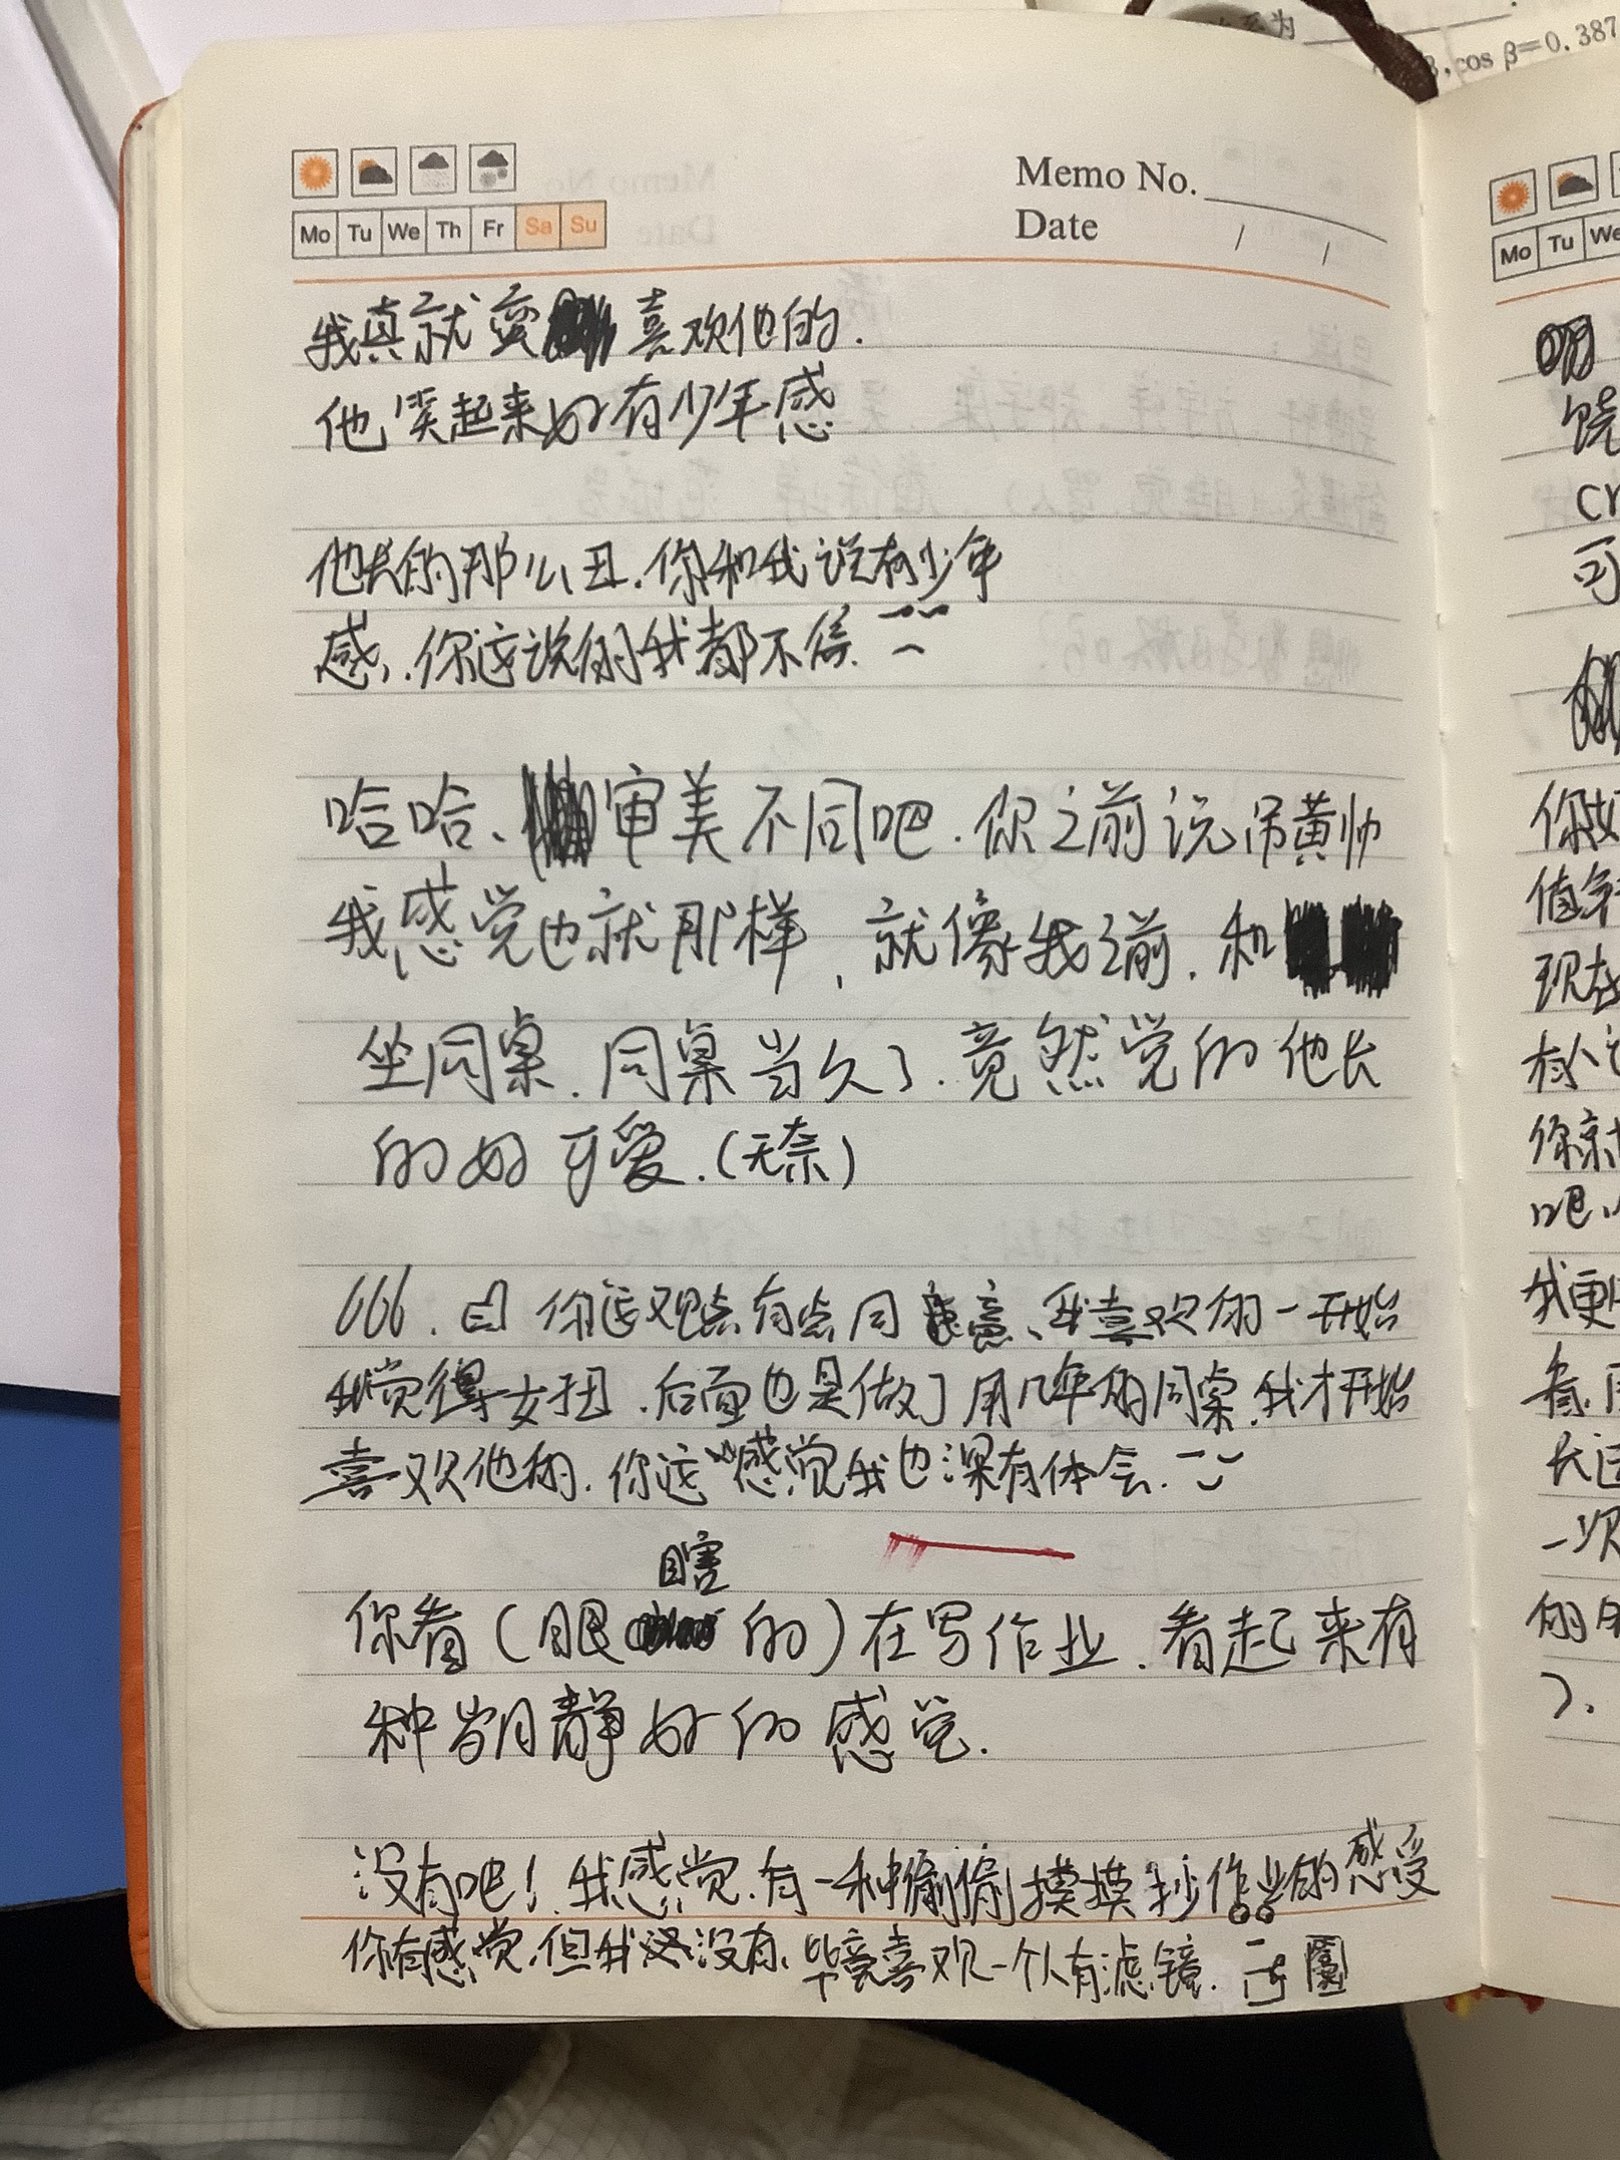 至为
β,cos β=0.387
Memo No.
Date / /
Mo Tu We Th Fr Sa Su
我真就蛮喜欢他的.
他笑起来好有少年感
他长的那么丑.你和我说有少年
感,.你这说的我都不信.
哈哈、审美不同吧.你之前说吊黄帅
我感觉也就那样,就像我之前.和
坐同桌.同桌当久了.竟然觉的他长
的好可爱.(无奈)
666. 你这观点有点同意、我喜欢的一开始
我觉得女扭.后面也是做了用几年的同桌.我才开始
喜欢他的.你这感觉我也深有体会.
瞎
你看(眼的)在写作业.看起来有
种岁月静好的感觉.
没有吧!.我感觉.有一种偷偷摸摸抄作业的感受
你有感觉.但我没有.毕竟喜欢一个人有滤镜.
Mo Tu We
饶
cr
可
你
值
现在
有人
你
吧
我更
看
长
一次
的